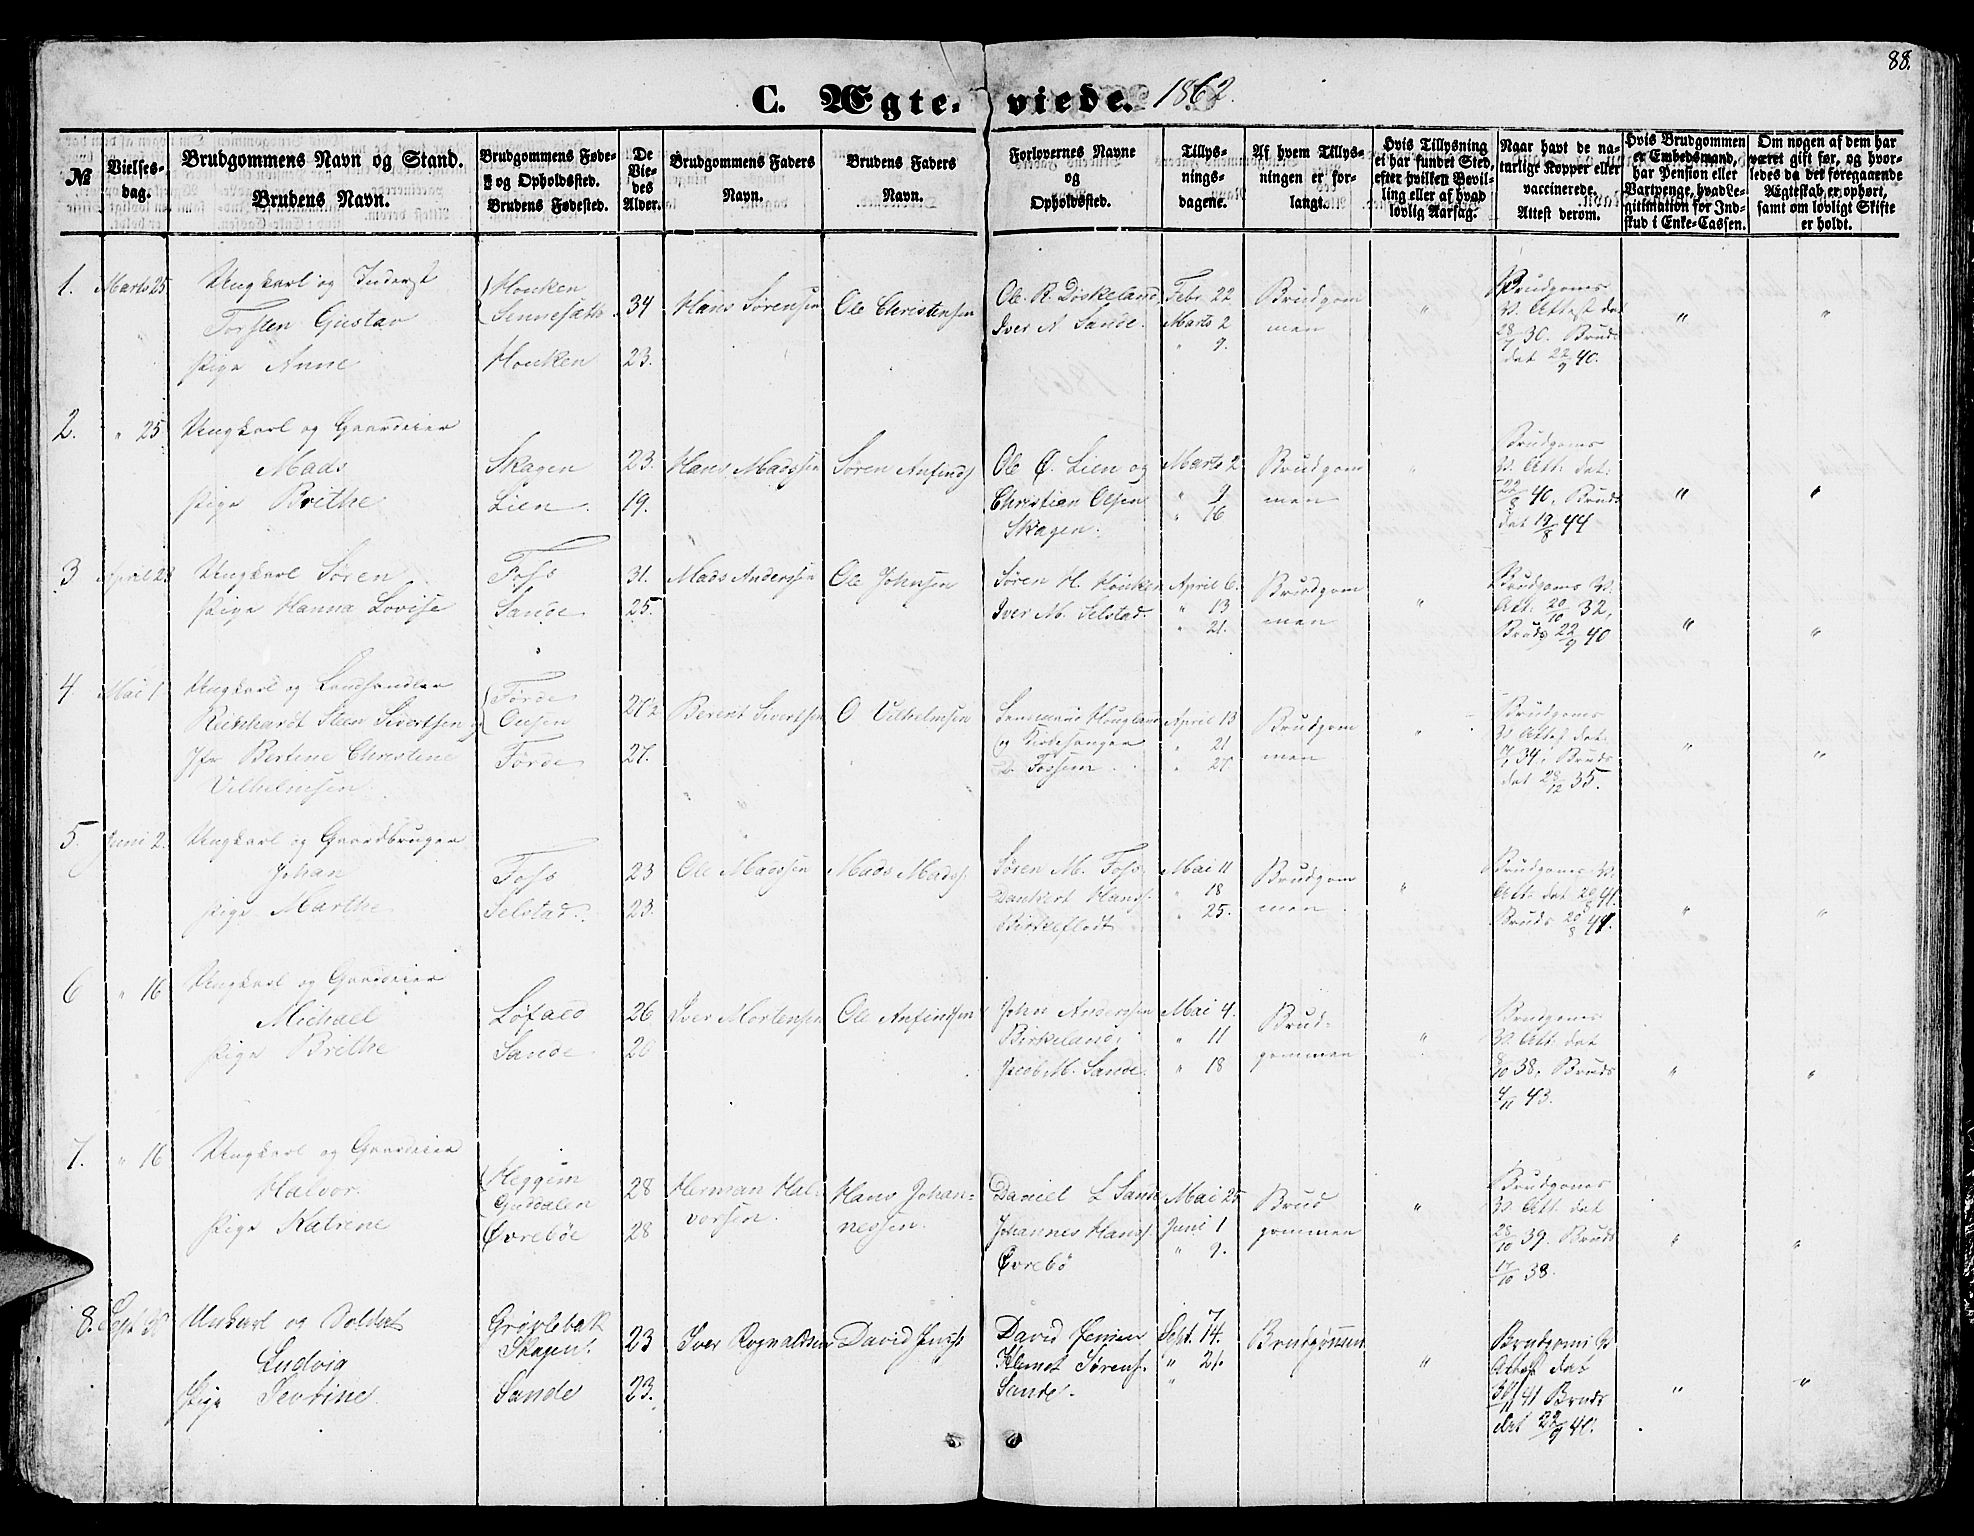 88.
C. Ægte- viede. 1862.
№
Vielses-
dag.
Brudgommens Navn og Stand.
Brudens Navn.
Brudgommens Føde-
og Opholdssted.
Brudens Fødested.
De
Vie-
des
Alder.
Brudgommens Faders
Navn.
Brudens Faders
Navn.
Forlovernes Navne
og
Opholdssted.
Tillys-
nings-
dagene.
Af hvem Tillys-
ningen er for-
langt.
Hvis Tillysning
ei har fundet Sted,
efter hvilken Bevil-
ling eller af hvad
lovlig Aarsag.
Naar havt de na-
turlige Kopper eller
vaccinerede.
Attest derom.
Hvis Brudgommen
er Embedsmand,
har Pension eller
Vartpenge, hvad Le-
gitimation for Ind-
skud i Enke-Cassen.
Om nogen af dem har
været gift før, og hvor-
ledes da det foregaaende
Ægteskab er ophørt,
samt om lovligt Skifte
er holdt.
1. Marts 25 Ungkarl og Inderst
Torsten Gustav
Pige Anne
Houken
Sennesæth
Houken
34
23.
Hans Sørensen
Ole Christensen
Ole R. Døskeland
Iver A Sande.
Febr. 22
Marts 2
" 9.
Brudgom
men
"
Brudgoms
V. Attest det
30. Bruds
det 22/9 40.
"
"
2. " 25 Ungkarl og Gaardeier
Mads
Pige Brithe
Skagen
Lien
23.
19.
Hans Madssen
Søren Anfinds
Ole Ø. Lien og
Christian Olsen
Skagen.
Marts 2
" 9
" 16
Brudgom
men
"
Brudgoms
V. Att: det:
22/8 40. Bruds
det 19/8 44
"
"
3 April 23 Ungkarl Søren
Pige Hanna Lovise
Foss
Sande
31.
25.
Mads Anderssen
Ole Johnsen
Søren H. Houken
Iver M. Selstad.
April 6.
" 13
" 21.
Brudgom
men
"
Brudgoms V.
Att: 20/10 32,
Bruds 22/9 40
"
"
4 Mai 1. Ungkarl og Landhandler
Richhardt Steen Sivertsen og
Jfr Bertine Christine
Vilhelmsen.
Førde
Førde
27½
27.
Berent Sivertsen
O Vilhelmsen
Lensmand Hougland
og Kirkesanger
Fossum
April 13
" 21
" 27
Brudgom
men
"
Brudgoms
V. Attest det:
34, Bruds
det 28/12 35.
"
"
5. Juni 2. Ungkarl og Gaardbruger
Johan
Pige Marthe
Foss
Selstad.
23
23.
Ole Madssen
Mads Mads.
Søren M. Foss,
Dankert Hans.
Birkeflodt
Mai 11
" 18
" 25.
Brudgom
men
"
Brudgoms V.
Att: det 20/8 41.
Bruds 20/8 41.
"
"
6 " 16 Ungkarl og Gaardeier
Michael
Pige Brithe
Løfald
Sande
26
20
Iver Mortensen
Ole Anfindsen
John Anderssen
Birkeland;
Jacob M. Sande.
Mai 4.
" 11
" 18
Brud-
gommen
"
Brudgoms
V. Att: det
8/10 38, Bruds
4/11 43.
"
"
7. " 16 Ungkarl og Gaardeier
Halvor.
Pige Katrine
Heggem
Guddalen
Øvrebøe
28
28
Herman Hal-
vorsen.
Hans Johan-
nessen.
Daniel L Sande
Johannes Hans.
Øvrebø
Mai 25
Juni 1
" 9.
Brud
gommen
"
Brudgoms
V. Att: det
28/10 39. Bruds
17/10 38.
"
"
8. Sept 30 Unkarl og Soldat
Ludvig
Pige Severine
Grøvlebak
Skagen.
Sande
23
23.
Iver Rognaldsen
David Jens.
David Jensen
Klemet Sørens.
Sande.
7
Sept. 14.
" 21.
"
Brudgommen
"
Brudgoms V.
Attest det
30/11 41 Bruds
det 22/9 40.
"
"